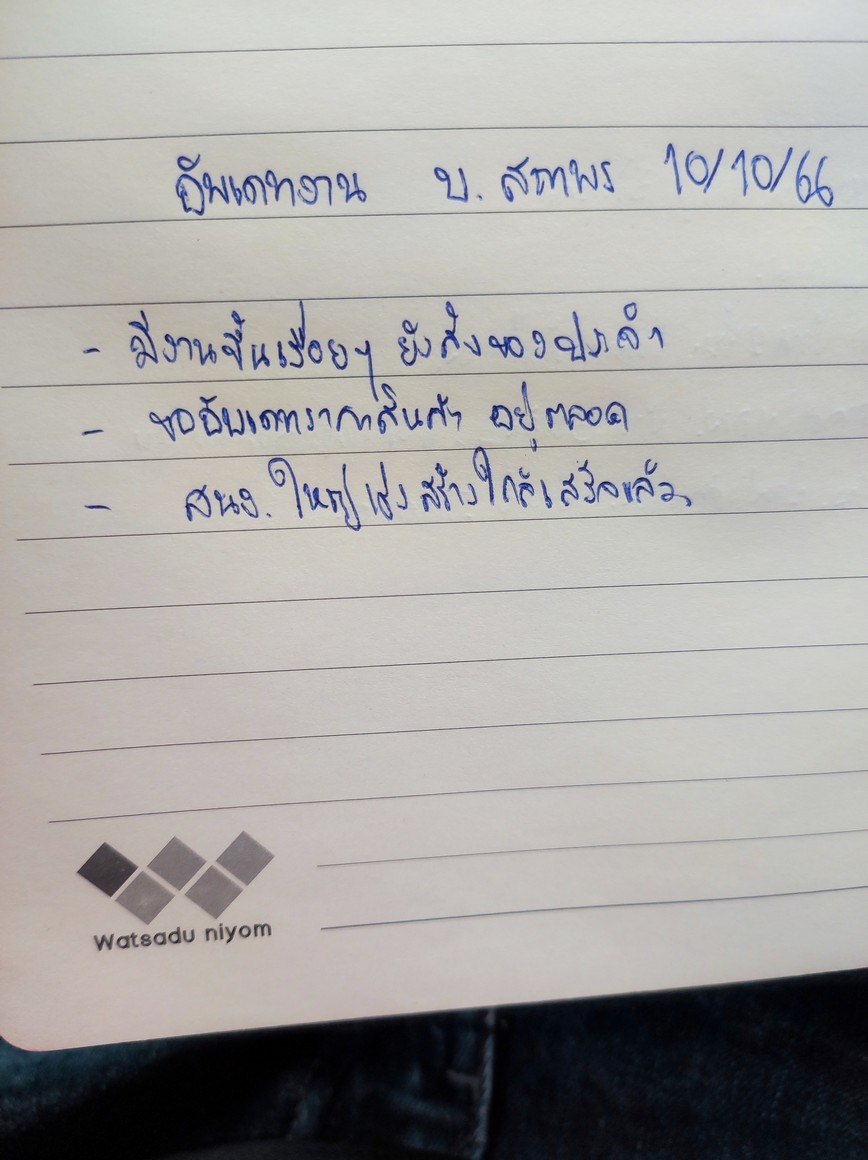 อัพเดทงาน บ. สถาพร 10/10/66
- มีงานขึ้นเรื่อยๆ ยังสั่งของประจำ
- ขออัพเดทราคาสินค้า อยู่ตลอด
- สนง. ใหญ่เร่งสร้างใกล้เสร็จแล้ว
Watsadu niyom